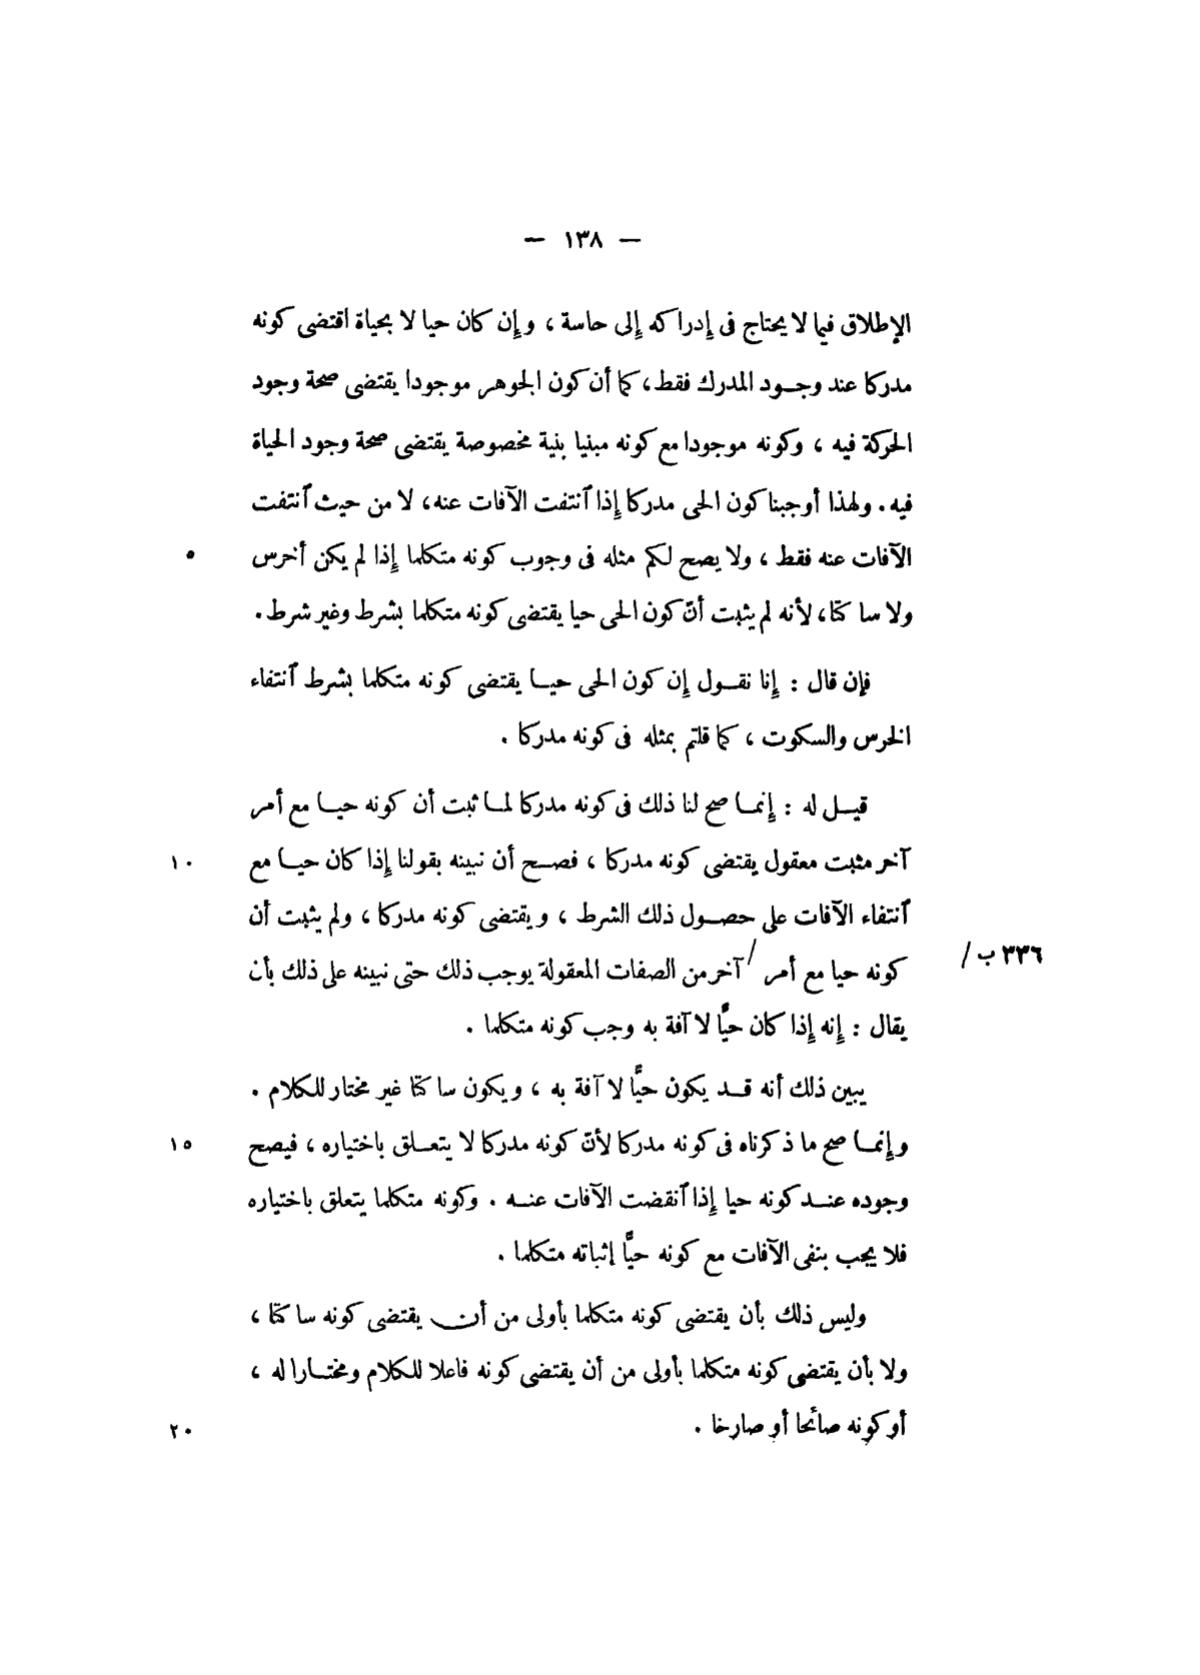 — ١٣٨ —
الإطلاق فيما لا يحتاج فى إدراكه إلى حاسة ، وإن كان حيا لا بحياة اقتضى كونه
مدركا عند وجود المدرك فقط، كما أن كون الجوهر موجودا يقتضى صحة وجود
الحركة فيه ، وكونه موجودا مع كونه مبنيا بنية مخصوصة يقتضى صحة وجود الحياة
فيه . ولهذا أوجبنا كون الحى مدركا إذا ٱنتفت الآفات عنه، لا من حيث ٱنتفت
الآفات عنه فقط ، ولا يصح لكم مثله فى وجوب كونه متكلما إذا لم يكن أخرس ٥
ولا ساكتا، لأنه لم يثبت أنّ كون الحى حيا يقتضى كونه متكلما بشرط وغير شرط .
فإن قال : إنا نقول إن كون الحى حيا يقتضى كونه متكلما بشرط ٱنتفاء
الخرس والسكوت ، كما قلتم بمثله فى كونه مدركا .
قيل له : إنما صح لنا ذلك فى كونه مدركا لما ثبت أن كونه حيا مع أمر
آخر مثبت معقول يقتضى كونه مدركا ، فصح أن نبينه بقولنا إذا كان حيا مع ١٠
ٱنتفاء الآفات على حصول ذلك الشرط ، ويقتضى كونه مدركا ، ولم يثبت أن
كونه حيا مع أمر / آخر من الصفات المعقولة يوجب ذلك حتى نبينه على ذلك بأن ٣٣٦ ب /
يقال : إنه إذا كان حيًّا لا آفة به وجب كونه متكلما .
يبين ذلك أنه قد يكون حيًّا لا آفة به ، ويكون ساكتا غير مختار للكلام .
وإنما صح ما ذكرناه فى كونه مدركا لأنّ كونه مدركا لا يتعلق باختياره ، فيصح ١٥
وجوده عند كونه حيا إذا ٱنقضت الآفات عنه . وكونه متكلما يتعلق باختياره
فلا يجب بنفى الآفات مع كونه حيًّا إثباته متكلما .
وليس ذلك بأن يقتضى كونه متكلما بأولى من أن يقتضى كونه ساكتا ،
ولا بأن يقتضى كونه متكلما بأولى من أن يقتضى كونه فاعلا للكلام ومختارا له ،
أو كونه صائحا أو صارخا . ٢٠